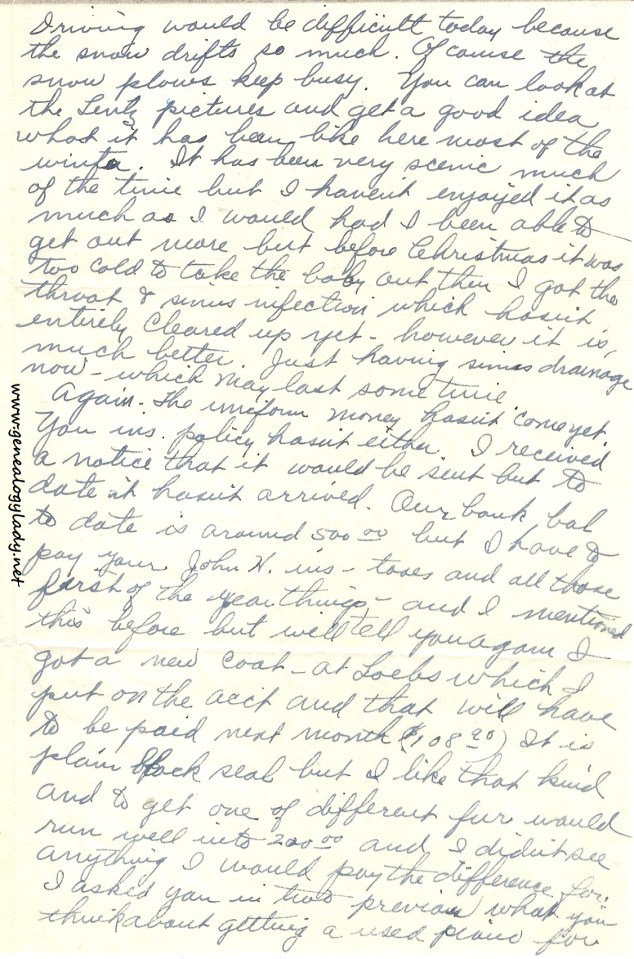 Driving would be difficult today because
the snow drifts so much. Of course the
snow plows keep busy. You can look at
the Lentz pictures and get a good idea
what it has been like here most of the
winter. It has been very scenic much
of the time but I havent enjoyed it as
much as I would had I been able to
get out more but before Christmas it was
too cold to take the baby out then I got the
throat & sinus infection which hasnt
entirely cleared up yet - however it is
much better. Just having sinus drainage
now - which may last some time
Again. The uniform money hasnt come yet.
You ins. policy hasnt either. I received
a notice that it would be sent but to
date it hasnt arrived. Our bank bal
to date is around 500 00 but I have to
pay your John H. ins - taxes and all those
first of the year things - and I mentioned
this before but will tell you again I
got a new coat - at Loebs which I
put on the acct and that will have
to be paid next month ($108 90) It is
plain black seal but I like that kind
and to get one of different fur would
run well into 200 00 and I didnt see
anything I would pay the difference for.
I asked you in two previous what you
think about getting a used piano for
www.genealogylady.net